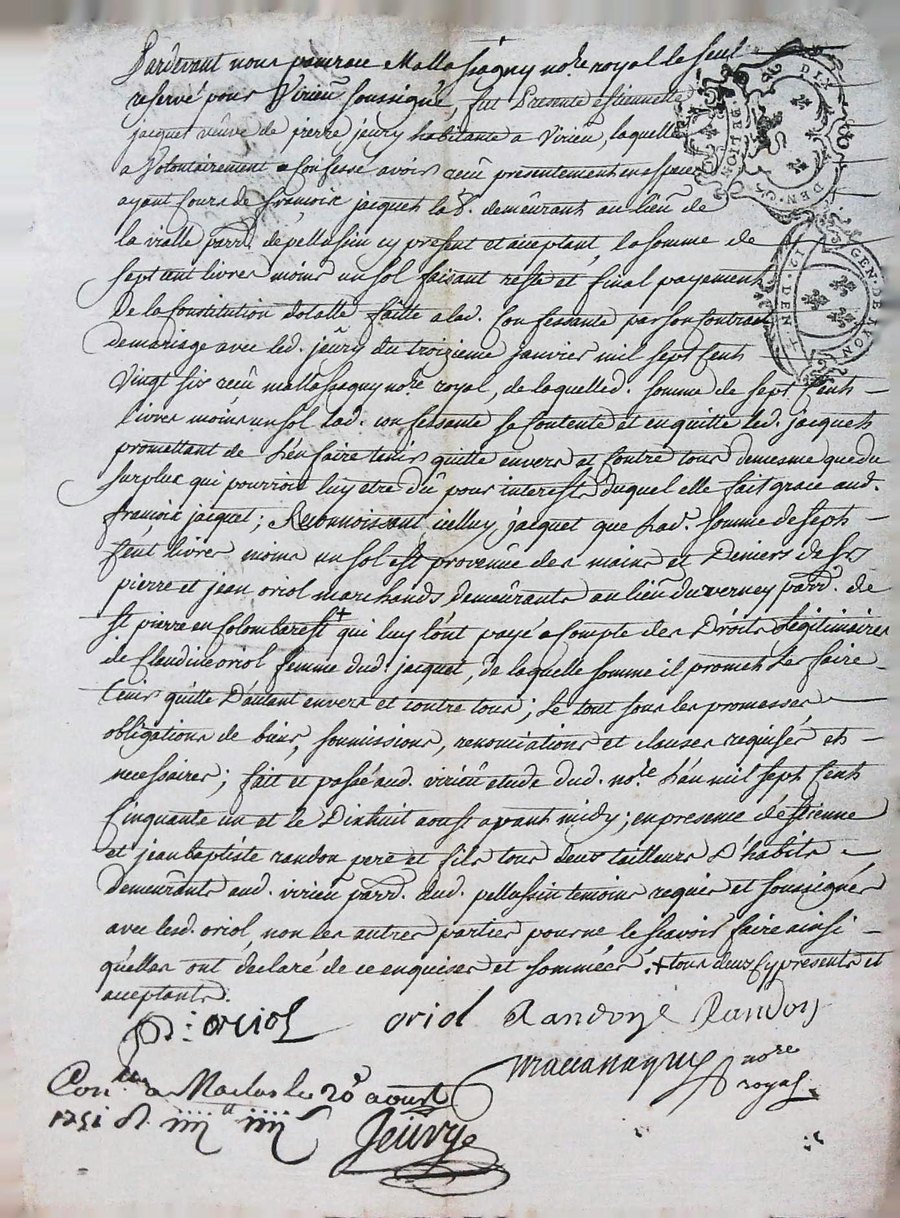 Pardevant nous pancrace Mallassagny no.re royal le seul
reservé pour Virieu soussigné, fut Presente estiennette
jacquet veuve de pierre jeury habitante a Virieu, laquelle
a Volontairement Confessé avoir reçu presentement en especes
ayant Cours de françois jacquet lab.r demeurant au lieu de
la vialle parr. de pellussin cy present et aceptant, la somme de
sept cent livres moins un sol faisant reste et final payement
De la Constitution dotalle faitte a lad. Confessante par son Contract
de mariage avec led. jeury du troizieme janvier mil sept Cent
Vingt six reçu mallassagny no.re royal, de laquelled. somme de sept Cent
livres moins un sol lad. confessante se Contente et en quitte led. jacquet
promettant de l'en faire tenir quitte envers et Contre tous de mesme que du
surplus qui pourroit luy etre dû pour interests duquel elle fait grace aud.
françois jacquet; Reconnoissant icelluy jacquet que lad. somme de sept
Cent livres moins un sol est provenüe des mains et Deniers de srs
pierre et jean oriol marchands demeurants au lieu du verney parr. de
st pierre en Colombarest + qui luy l'ont payé a Compte des Droits Legitimaires
de Claudine oriol femme dud. jacquet, de laquelle somme il promet Les faire
tenir quitte D'autant envers et contre tous; Le tout sous les promesses
obligations de biens, soumissions, renonciations et clauses requises et
necessaires; fait et passé aud. virieu etude dud. no.re L'an mil sept Cent
Cinquante un et le Dixhuit aoust avant midy; en presence d'estienne
et jean baptiste randon pere et fils tous deux tailleurs d'habits
demeurants aud. virieu parr. dud. pellussin temoins requis et soussignés
avec lesd. oriol, non les autres parties pour ne le sçavoir faire ainsi
qu'elles ont déclaré de ce enquises et sommées. + tous deux cy presents et
aceptants.
p: oriol oriol Randon Randon
no.re
royal
Con.llé a Maclas le 20 aoust
1751
Jeüvye
GEN. DE LION
DEN
GEN. DE LION
12. DEN